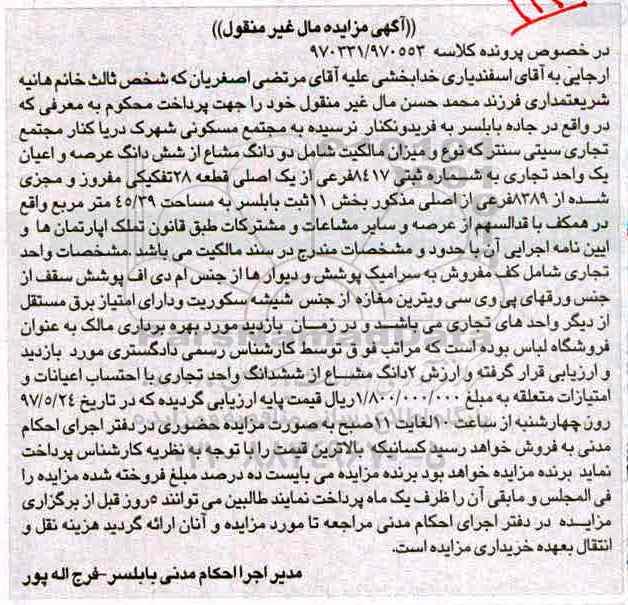 ((آگهی مزایده مال غیر منقول))
در خصوص پرونده کلاسه ۹۷۰۳۳۱/۹۷۰۵۵۳
ارجایی به آقای اسفندیاری خدابخشی علیه آقای مرتضی اصغریان که شخص ثالث خانم هانیه
شریعتمداری فرزند محمد حسن مال غیر منقول خود را جهت پرداخت محکوم به معرفی که
در واقع در جاده بابلسر به فریدونکنار نرسیده به مجتمع مسکونی شهرک دریا کنار مجتمع
تجاری سیتی سنتر که نوع و میزان مالکیت شامل دو دانگ مشاع از شش دانگ عرصه و اعیان
یک واحد تجاری به شماره ثبتی ۸۴۱۷فرعی از یک اصلی قطعه ۲۸تفکیکی مفروز و مجزی
شده از ۸۳۸۹فرعی از اصلی مذکور بخش ۱۱ثبت بابلسر به مساحت ۴۵/۳۹ متر مربع واقع
در همکف با قدالسهم از عرصه و سایر مشاعات و مشترکات طبق قانون تملک اپارتمان ها و
ایین نامه اجرایی آن با حدود و مشخصات مندرج در سند مالکیت می باشد.مشخصات واحد
تجاری شامل کف مفروش به سرامیک پوشش و دیوار ها از جنس ام دی اف پوشش سقف از
جنس ورقهای پی وی سی ویترین مغازه از جنس شیشه سکوریت ودارای امتیاز برق مستقل
از دیگر واحد های تجاری می باشد و در زمان بازدید مورد بهره برداری مالک به عنوان
فروشگاه لباس بوده است که مراتب فوق توسط کارشناس رسمی دادگستری مورد بازدید
و ارزیابی قرار گرفته و ارزش ۲دانگ مشاع از ششدانگ واحد تجاری با احتساب اعیانات و
امتیازات متعلقه به مبلغ ۱/۸۰۰/۰۰۰/۰۰۰ریال قیمت پایه ارزیابی گردیده که در تاریخ ۹۷/۵/۲۴
روز چهارشنبه از ساعت ۱۰لغایت ۱۱صبح به صورت مزایده حضوری در دفتر اجرای احکام
مدنی به فروش خواهد رسید کسانیکه بالاترین قیمت را با توجه به نظریه کارشناس پرداخت
نماید برنده مزایده خواهد بود برنده مزایده می بایست ده درصد مبلغ فروخته شده مزایده را
فی المجلس و مابقی آن را ظرف یک ماه پرداخت نمایند طالبین می توانند ۵روز قبل از برگزاری
مزایده در دفتر اجرای احکام مدنی مراجعه تا مورد مزایده و آنان ارائه گردید هزینه نقل و
انتقال بعهده خریداری مزایده است.
مدیر اجرا احکام مدنی بابلسر-فرج اله پور